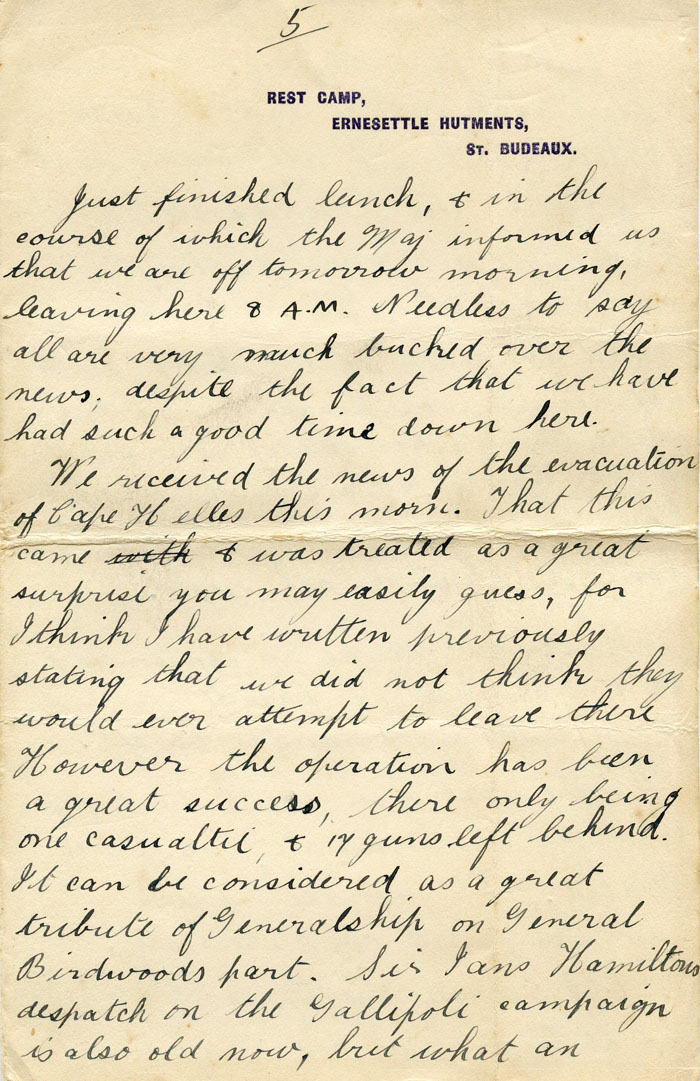 5
REST CAMP,
ERNESETTLE HUTMENTS,
ST. BUDEAUX.
Just finished lunch, & in the
course of which the Maj informed us
that we are off tomorrow morning,
leaving here 8 A.M. Needless to say
all are very much bucked over the
news, despite the fact that we have
had such a good time down here.
We received the news of the evacuation
of Cape Helles this morn. That this
came with & was treated as a great
surprise you may easily guess, for
I think I have written previously
stating that we did not think they
would ever attempt to leave there
However the operation has been
a great success, there only being
one casualtie, & 17 guns left behind.
It can be considered as a great
tribute of Generalship on General
Birdwoods part. Sir Ians Hamiltons
despatch on the Gallipoli campaign
is also old now, but what an